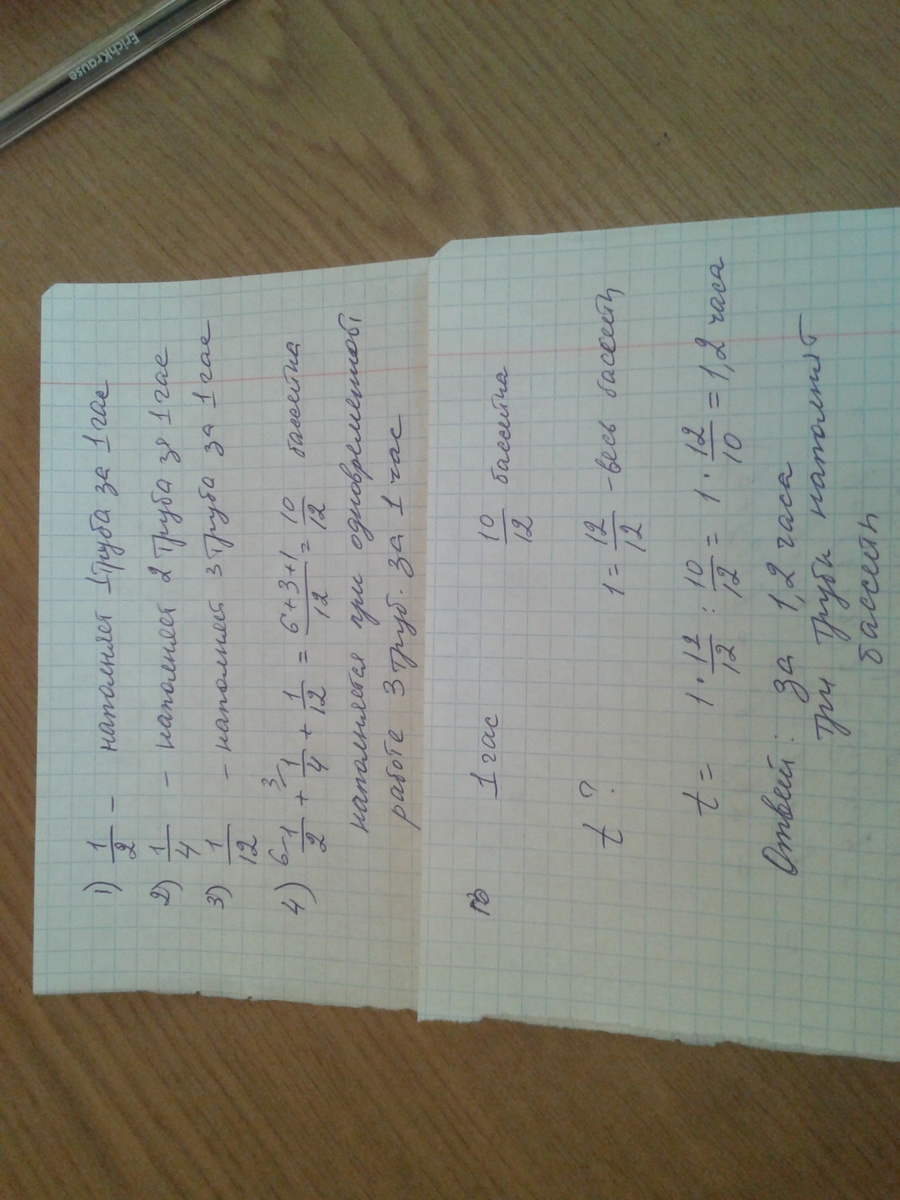 ErichKrause
1) 1/2 – наполняет 1 труба за 1 час
2) 1/4 – наполняет 2 труба за 1 час
3) 1/12 – наполняет 3 труба за 1 час
4) 6 1/2 + 3 1/4 + 1/12 = 6+3+1/12 = 10/12 бассейна
наполняется при одновременной
работе 3 труб. за 1 час
1 час 10/12 бассейна
t ? 1 = 12/12 - весь бассейн
t = 1 · 12/12 : 10/12 = 1 · 12/10 = 1,2 часа
Ответ: за 1,2 часа
три трубы наполнят
бассейн